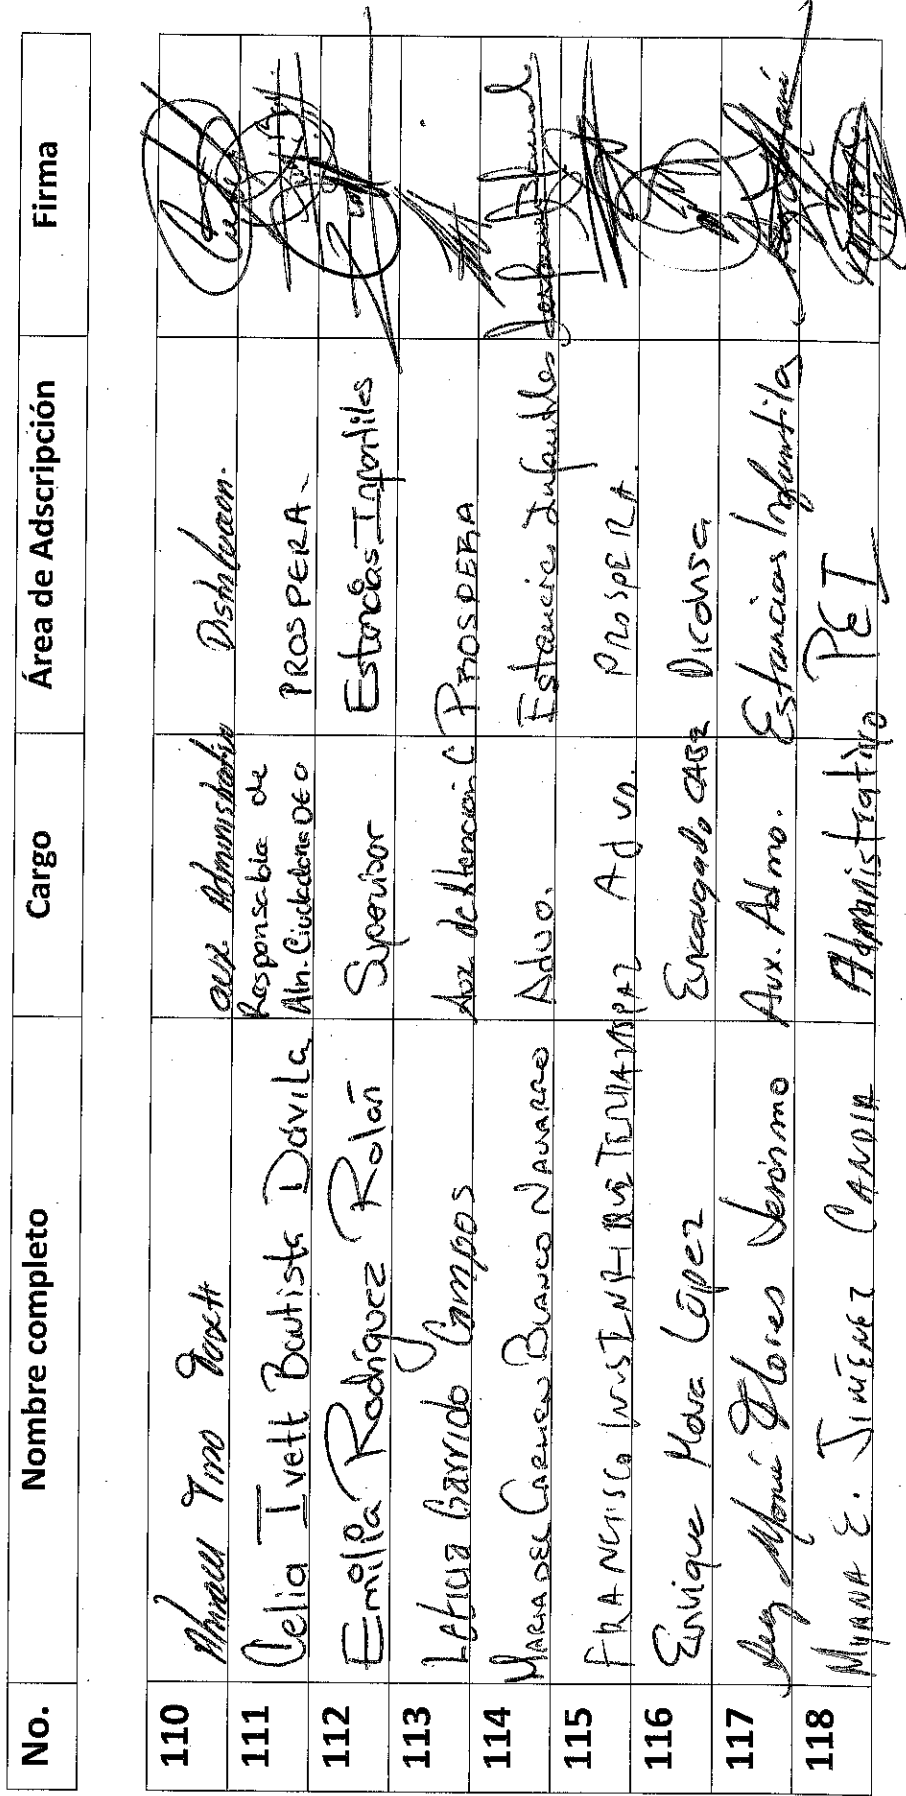 No. Nombre completo Cargo Área de Adscripción Firma
110 aux. Administrativo Distribución.
111 Celia Ivett Bautista Dávila Responsable de Atn. Ciudadana PROSPERA.
112 Emilia Rodríguez Rolón Supervisor Estancias Infantiles
113 Leticia Garrido Campos Aux de Atención C PROSPERA
114 MARIA DEL CARMEN BLANCO NAVARRO Advo. Estancias Infantiles
115 FRANCISCO Advo. PROSPERA.
116 Enrique Mora López Encargado Diconsa
117 Flores Jerónimo Aux. Admo. Estancias Infantiles
118 E. JIMÉNEZ CANDIA Administrativo PEI